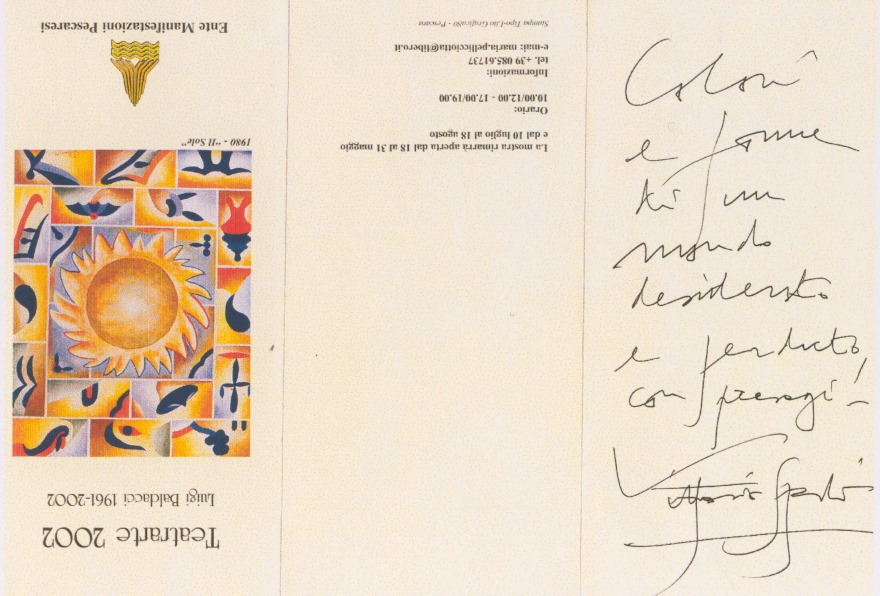 Teatrarte 2002
Luigi Baldacci 1961-2002
1980 - "Il Sole"
Ente Manifestazioni Pescaresi
La mostra rimarrà aperta dal 18 al 31 maggio
e dal 10 luglio al 18 agosto
Orario:
10.00/12.00 - 17.00/19.00
Informazioni:
tel. +39 085.61737
e-mai: maria.pellicciotta@libero.it
Stampa Tipo-Lito Grafica80 - Pescara
Colori
e forme
di un
mondo
desiderato
e perduto,
con presagi!
Vittorio Sgarbi